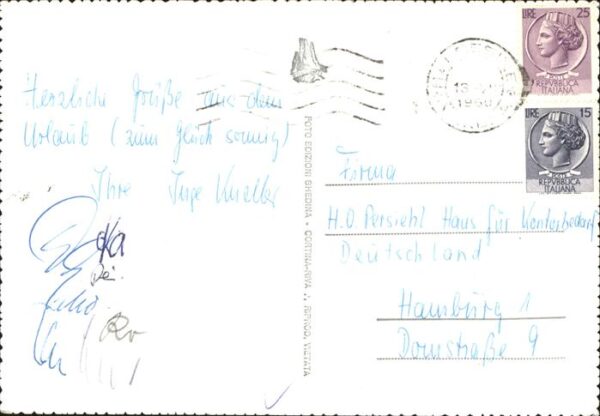 LIRE 25
REPVBBLICA
ITALIANA
LIRE 15
POSTE
REPVBBLICA
ITALIANA
1960
Herzliche Grüße aus dem
Urlaub (zum Glück sonnig)
Ihre Inge
FOTO EDIZIONI GHEDINA - CORTINA
RIPROD. VIETATA
Firma
H.O. Persiehl Haus für Kontorbedarf
Deutschland
Hamburg 1
Domstraße 9
Ka